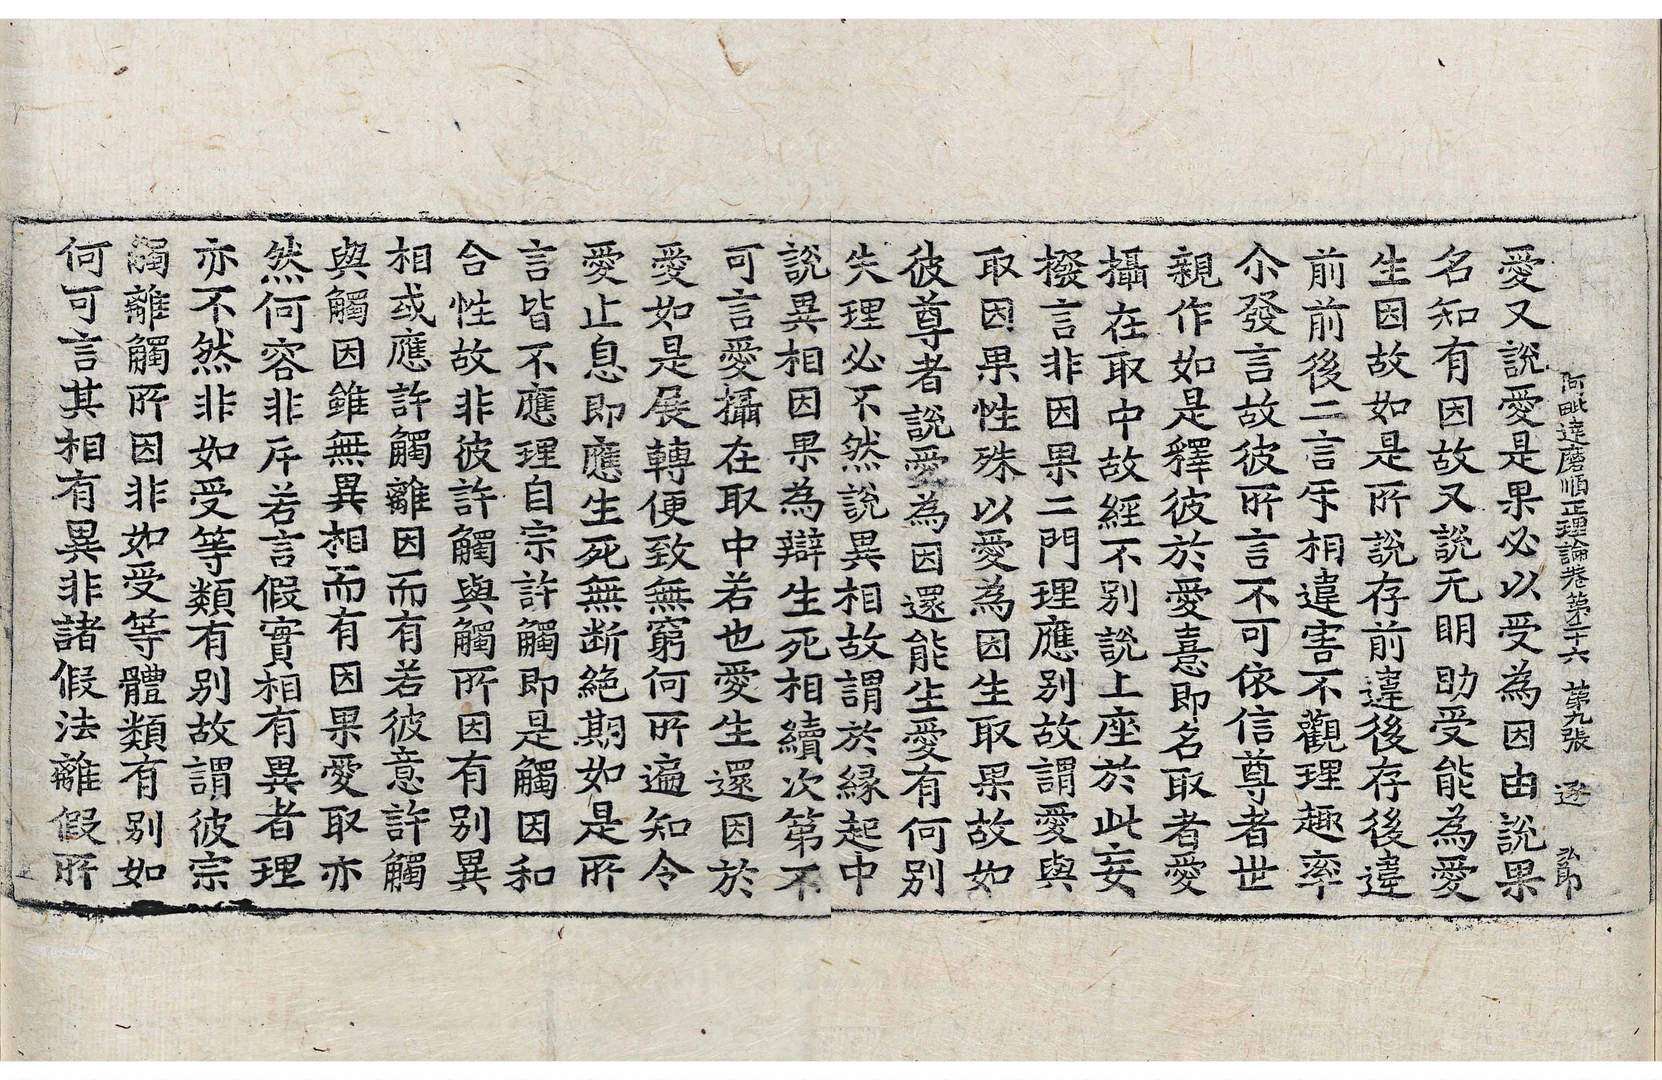 阿毗達磨順正理論卷第二十六 第九張 逐 弘郎
愛又說愛是果必以受為因由說果
名知有因故又說无明助受能為愛
生因故如是所說存前違後存後違
前前後二言㸦相違害不觀理趣率
尒發言故彼所言不可依信尊者世
親作如是釋彼於愛憙即名取者愛
攝在取中故經不別說上座於此妄
撥言非因果二門理應別故謂愛與
取因果性殊以愛為因生取果故如
彼尊者說愛為因還能生愛有何別
失理必不然說異相故謂於緣起中
說異相因果為辯生死相續次第不
可言愛攝在取中若也愛生還因於
愛如是展轉便致無窮何所遍知令
愛止息即應生死無断絕期如是所
言皆不應理自宗許觸即是觸因和
合性故非彼許觸與觸所因有別異
相或應許觸離因而有若彼意許觸
與觸因雖無異相而有因果愛取亦
然何容非斥若言假實相有異者理
亦不然非如受等類有別故謂彼宗
觸離觸所因非如受等體類有別如
何可言其相有異非諸假法離假所